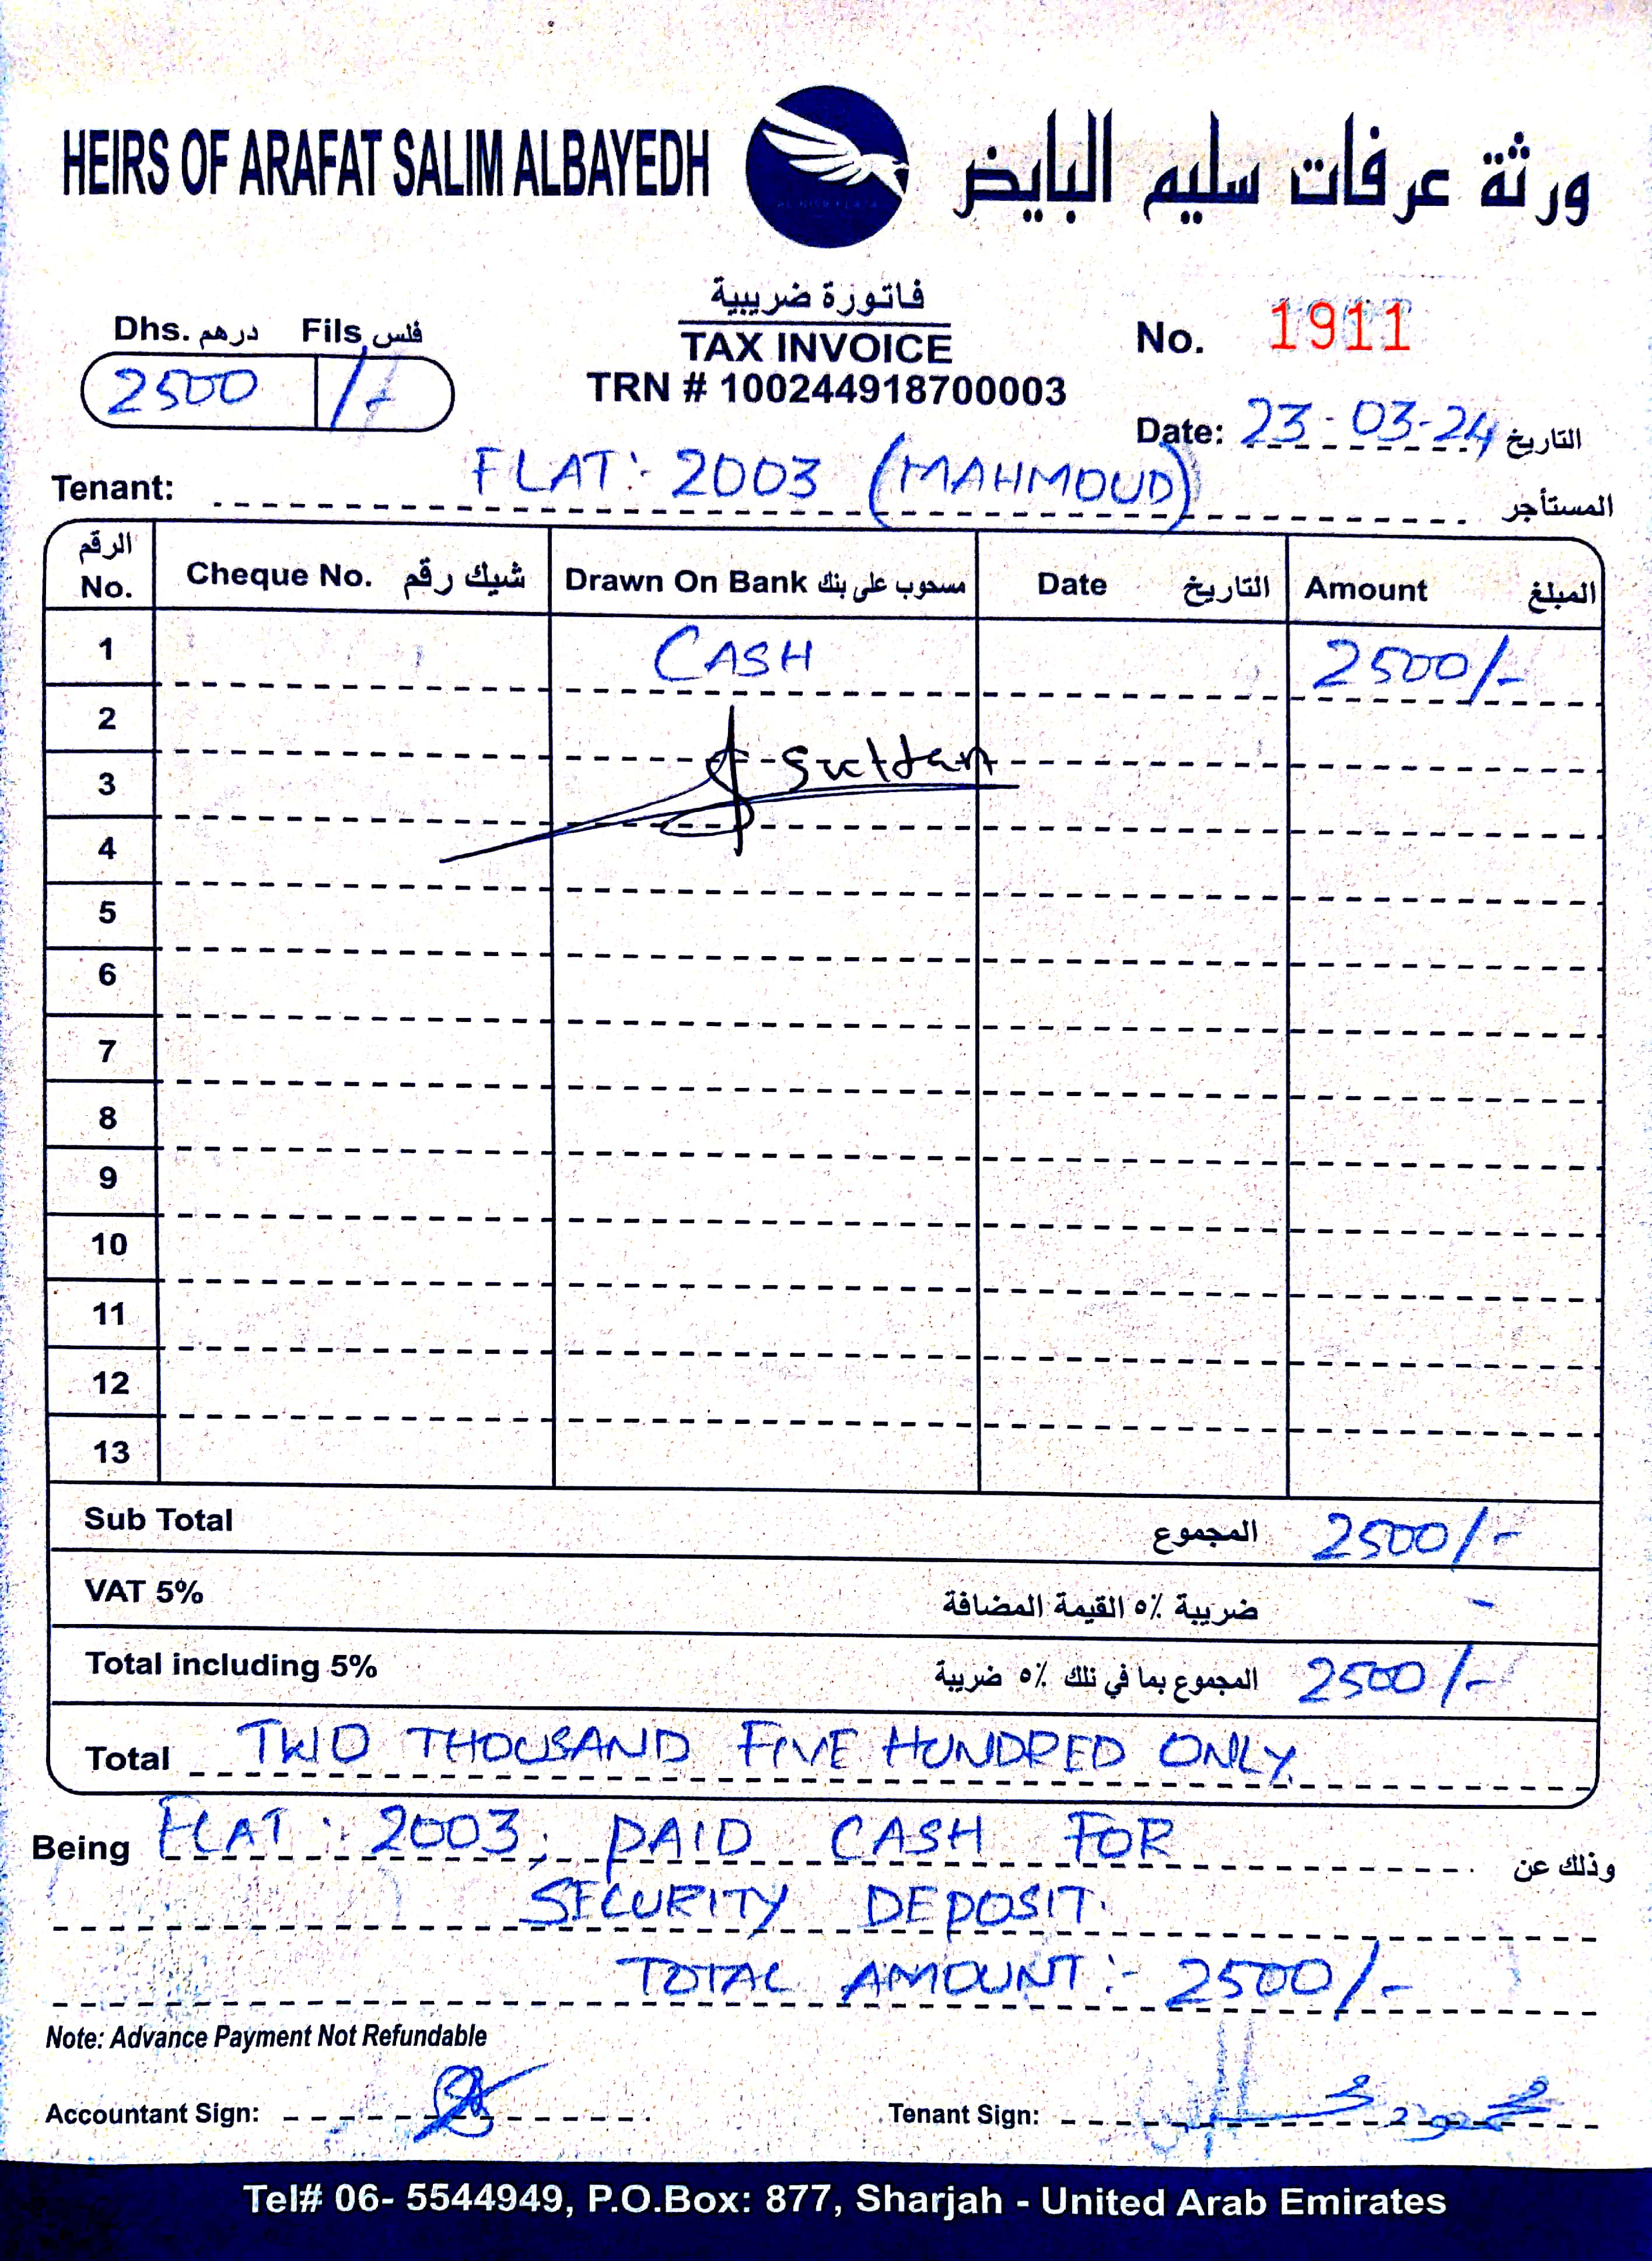 HEIRS OF ARAFAT SALIM ALBAYEDH ورثة عرفات سليم البايض
فاتورة ضريبية
Dhs. درهم Fils فلس
TAX INVOICE
No. 1911
2500 /-
TRN # 100244918700003
Date: 23-03-24 التاريخ
Tenant: FLAT:- 2003 (MAHMOUD) المستأجر
الرقم No. Cheque No. شيك رقم Drawn On Bank مسحوب على بنك Date التاريخ Amount المبلغ
1 CASH 2500/-
2
3 Sultan
4
5
6
7
8
9
10
11
12
13
Sub Total المجموع 2500/-
VAT 5% ضريبة ٥٪ القيمة المضافة -
Total including 5% المجموع بما في ذلك ٥٪ ضريبة 2500/-
Total TWO THOUSAND FIVE HUNDRED ONLY
Being FLAT: 2003; PAID CASH FOR وذلك عن
SECURITY DEPOSIT.
TOTAL AMOUNT:- 2500/-
Note: Advance Payment Not Refundable
Accountant Sign: Tenant Sign: محمود
Tel# 06- 5544949, P.O.Box: 877, Sharjah - United Arab Emirates